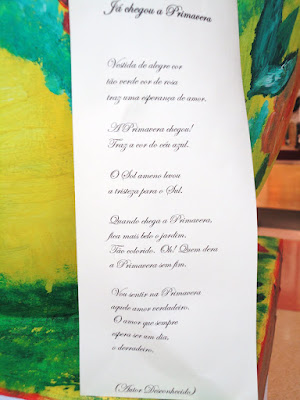 Já chegou a Primavera
Vestida de alegre cor
tão verde cor de rosa
traz uma esperança de amor.
A Primavera chegou!
Traz a cor do céu azul.
O Sol ameno levou
a tristeza para o Sul.
Quando chega a Primavera,
fica mais belo o jardim.
Tão colorido. Oh! Quem dera
a Primavera sem fim.
Vou sentir na Primavera
aquele amor verdadeiro.
O amor que sempre
espera ser um dia,
o derradeiro.
(Autor Desconhecido)